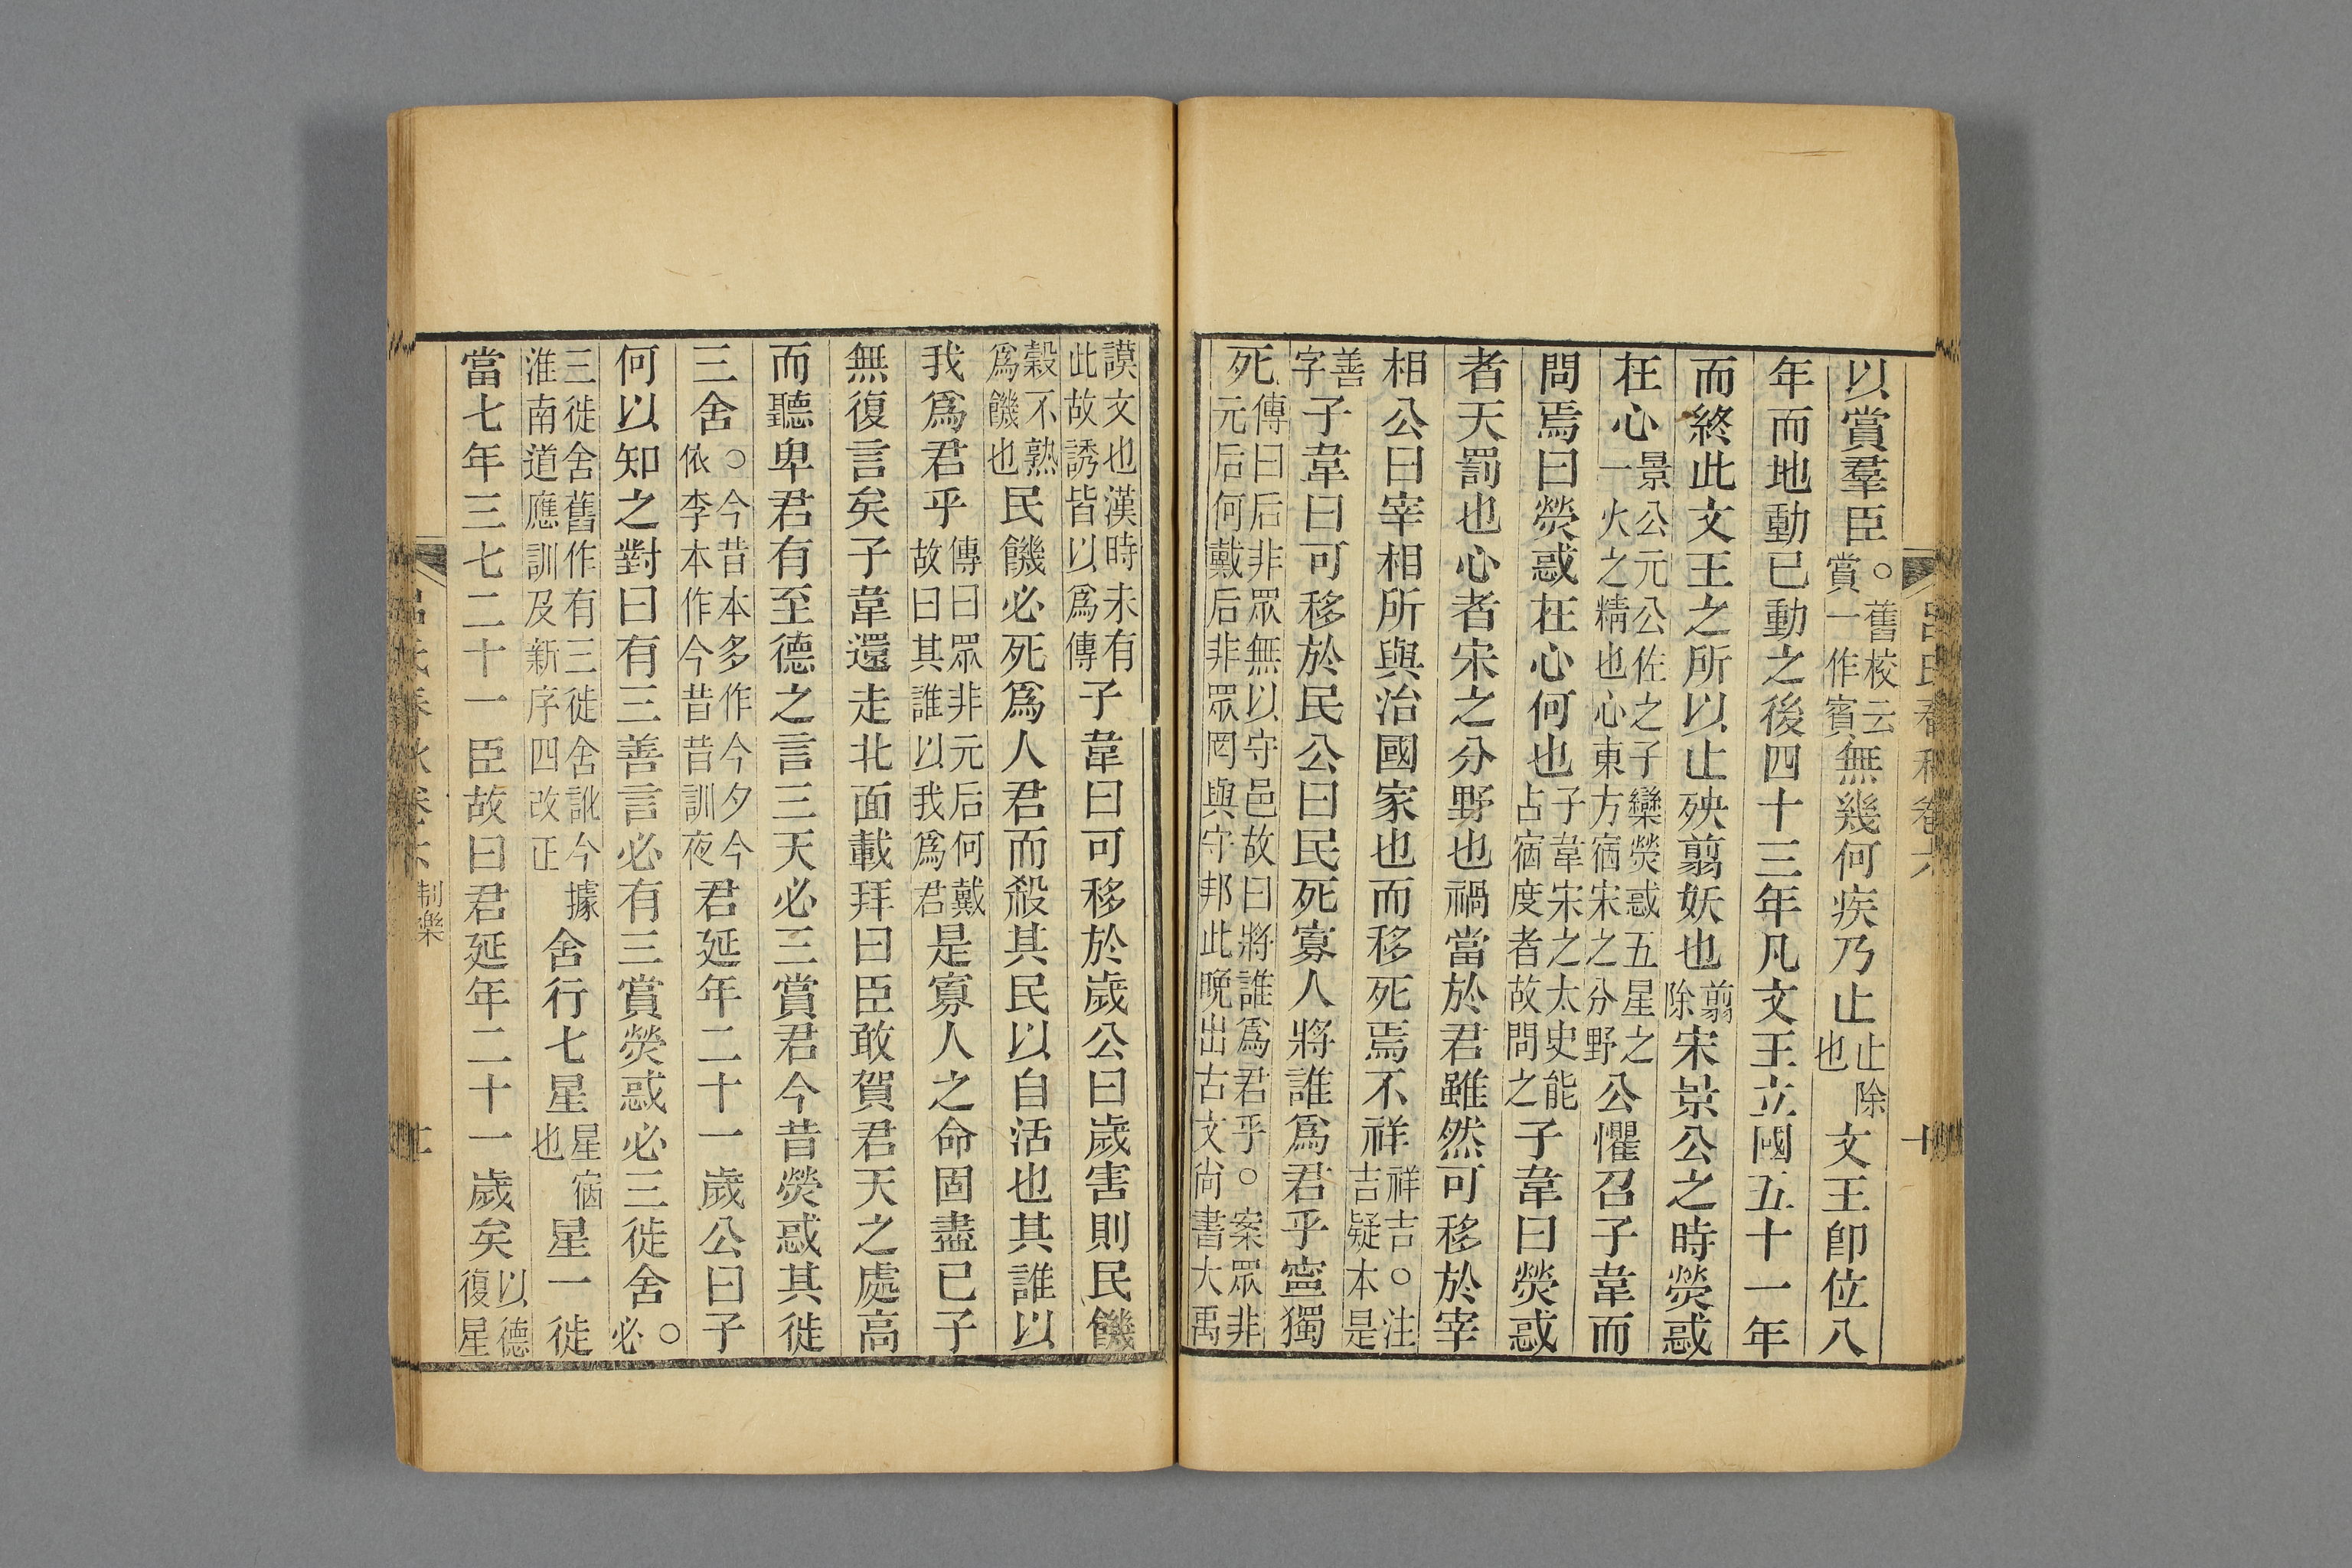 以賞羣臣○舊校云賞一作賓無幾何疾乃止止除也文王卽位八
年而地動已動之後四十三年凡文王立國五十一年
而終此文王之所以止殃翦妖也翦除宋景公之時熒惑
在心景公元公佐之子欒熒惑五星之一火之精也心東方宿宋之分野公懼召子韋而
問焉曰熒惑在心何也子韋宋之太史能占宿度者故問之子韋曰熒惑
者天罰也心者宋之分野也禍當於君雖然可移於宰
相公曰宰相所與治國家也而移死焉不祥祥吉○注吉疑本是
善字子韋曰可移於民公曰民死寡人將誰爲君乎寧獨
死傳曰后非眾無以守邑故曰將誰爲君乎○案眾非元后何戴后非眾罔與守邦此晚出古文尚書大禹
謨文也漢時未有此故誘皆以爲傳子韋曰可移於歲公曰歲害則民饑
穀不熟爲饑也民饑必死爲人君而殺其民以自活也其誰以
我爲君乎傳曰眾非元后何戴故曰其誰以我爲君是寡人之命固盡已子
無復言矣子韋還走北面載拜曰臣敢賀君天之處高
而聽卑君有至德之言三天必三賞君今昔熒惑其徙
三舍○今昔本多作今夕今依李本作今昔昔訓夜君延年二十一歲公曰子
何以知之對曰有三善言必有三賞熒惑必三徙舍○必
三徙舍舊作有三徙舍訛今據淮南道應訓及新序四改正舍行七星星宿也星一徙
當七年三七二十一臣故曰君延年二十一歲矣以德復星
呂氏春秋卷六
制樂